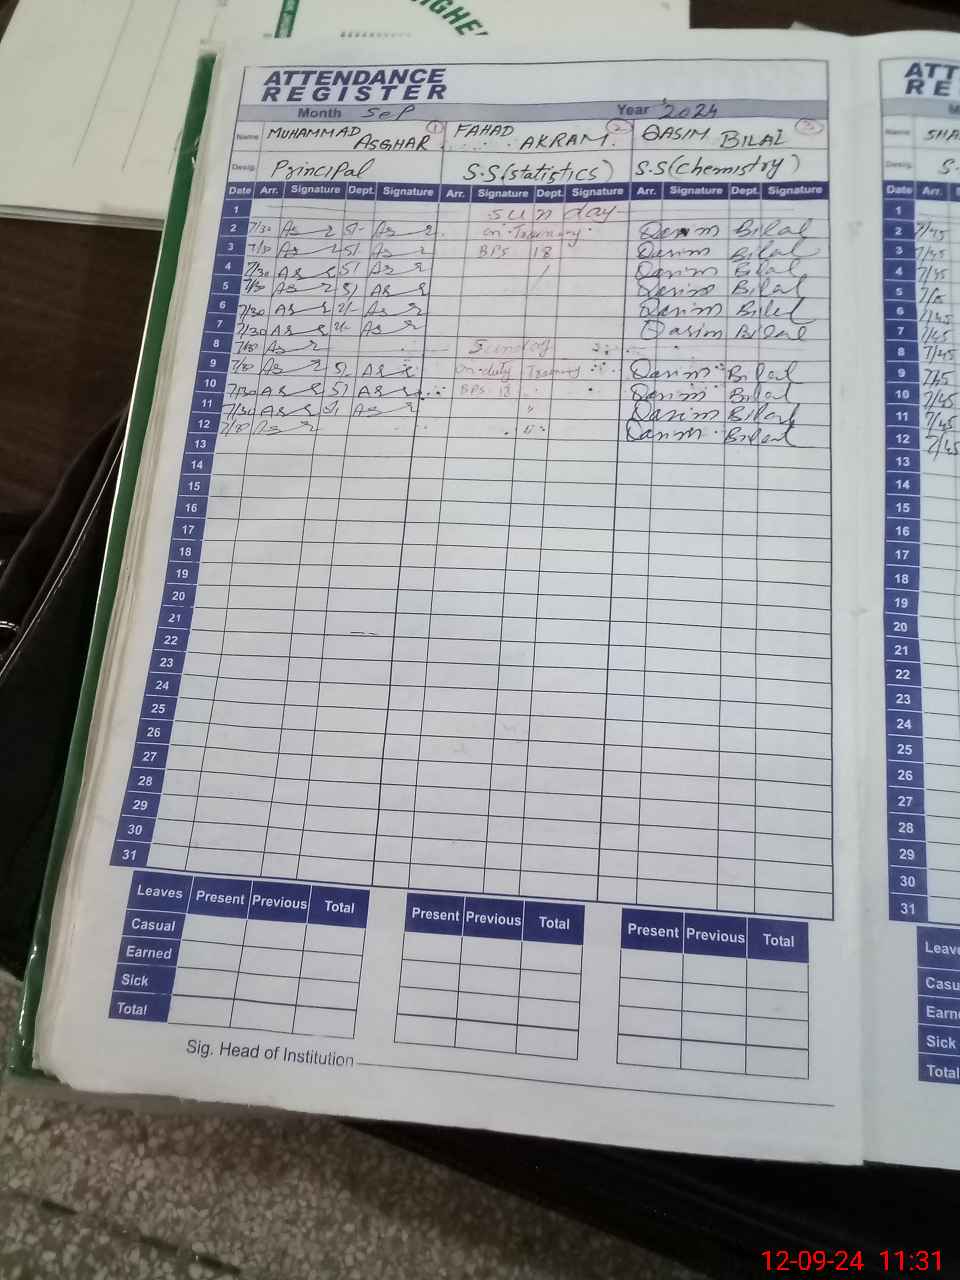 ATTENDANCE
REGISTER
Month Sep Year 2024
Name MUHAMMAD ASGHAR 1 FAHAD AKRAM. 2 QASIM BILAL 3
Desig. Principal S.S(statistics) S.S(Chemistry)
Date Arr. Signature Dept. Signature Arr. Signature Dept. Signature Arr. Signature Dept. Signature
1 Sunday
2 7/30 On Training Qasim Bilal
3 7/30 BPS 18 Qasim Bilal
4 7/30 Qasim Bilal
5 7/30 Qasim Bilal
6 7/30 Qasim Bilal
7 7/30 Qasim Bilal
8 Sunday
9 7/30 On duty Training Qasim Bilal
10 7/30 BPS 18 Qasim Bilal
11 7/30 Qasim Bilal
12 7/30 Qasim Bilal
13
14
15
16
17
18
19
20
21
22
23
24
25
26
27
28
29
30
31
Leaves Present Previous Total Present Previous Total Present Previous Total
Casual
Earned
Sick
Total
Sig. Head of Institution
ATT
RE
Name SHA
Desig. S.
Date Arr.
1
2 7/45
3 7/45
4 7/45
5
6
7 7/45
8 7/45
9 7/45
10 7/45
11 7/45
12 7/45
13
14
15
16
17
18
19
20
21
22
23
24
25
26
27
28
29
30
31
Leave
Casu
Earn
Sick
Total
12-09-24 11:31